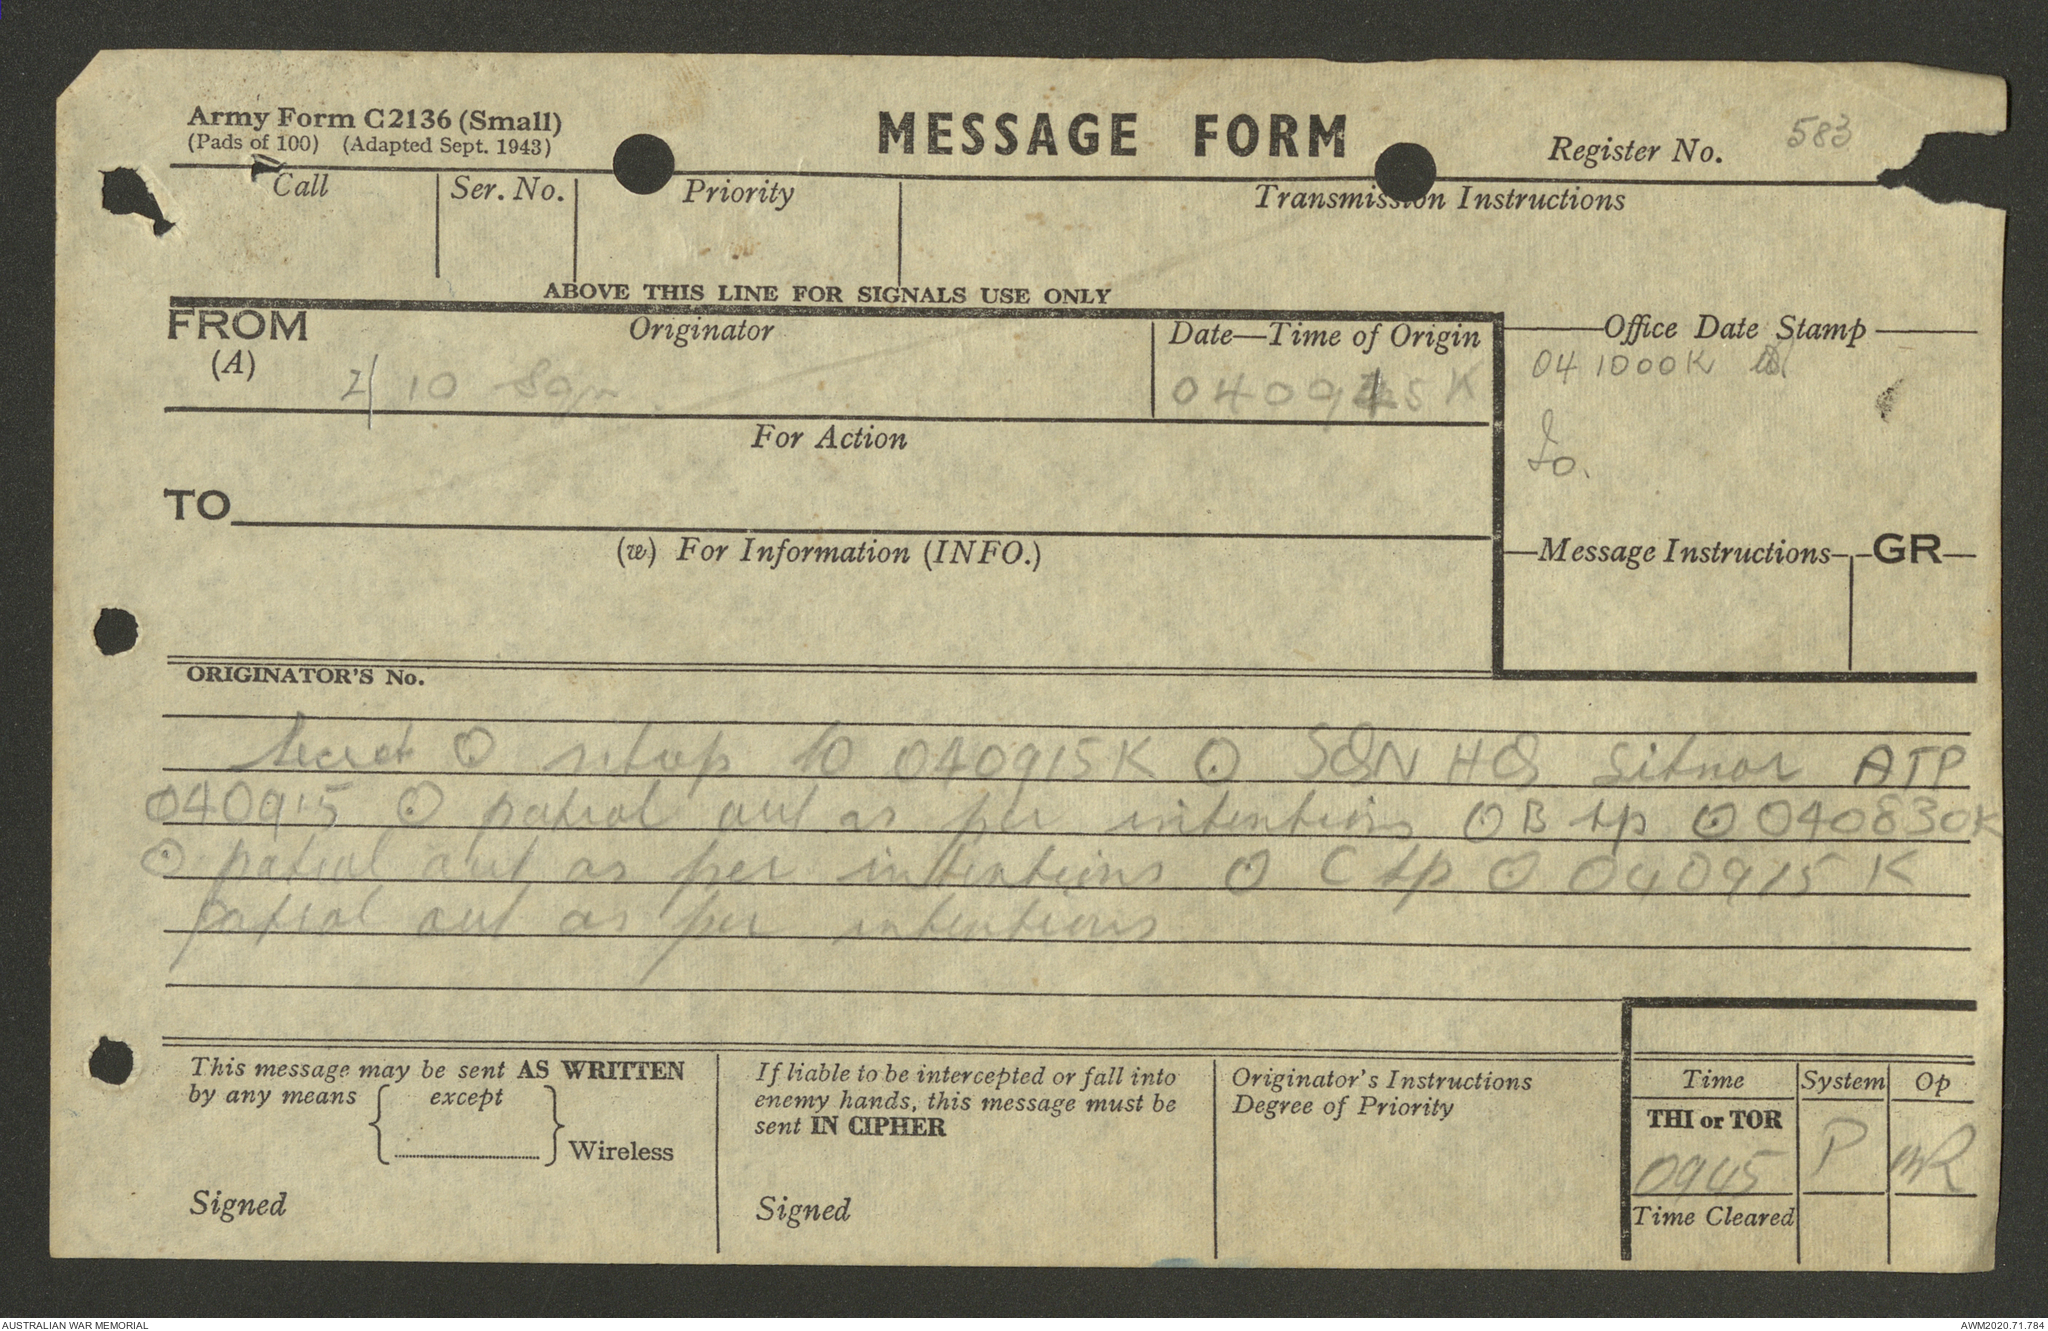 Army Form C2136 (Small)
(Pads of 100) (Adapted Sept. 1943)
MESSAGE FORM
Register No. 583
Call
Ser. No.
Priority
Transmission Instructions
ABOVE THIS LINE FOR SIGNALS USE ONLY
FROM
(A)
Originator
2/10 Sqn
Date—Time of Origin
040945K
Office Date Stamp
041000K
Io.
For Action
TO
(w) For Information (INFO.)
Message Instructions
GR
ORIGINATOR'S No.
Secret O sitrep to 040915K O SQN HQ sitnor A TP
040915 O patrol out as per intentions O B tp O 040830K
O patrol out as per intentions O C tp O 040915K
patrol out as per intentions
This message may be sent AS WRITTEN
by any means
except
Wireless
Signed
If liable to be intercepted or fall into
enemy hands, this message must be
sent IN CIPHER
Signed
Originator's Instructions
Degree of Priority
Time
System
Op
THI or TOR
0945
P
Time Cleared
AUSTRALIAN WAR MEMORIAL
AWM2020.71.784